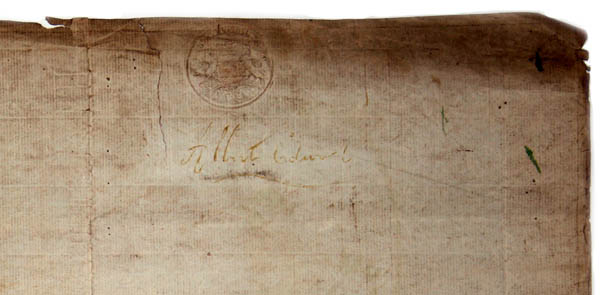 Albert Edward